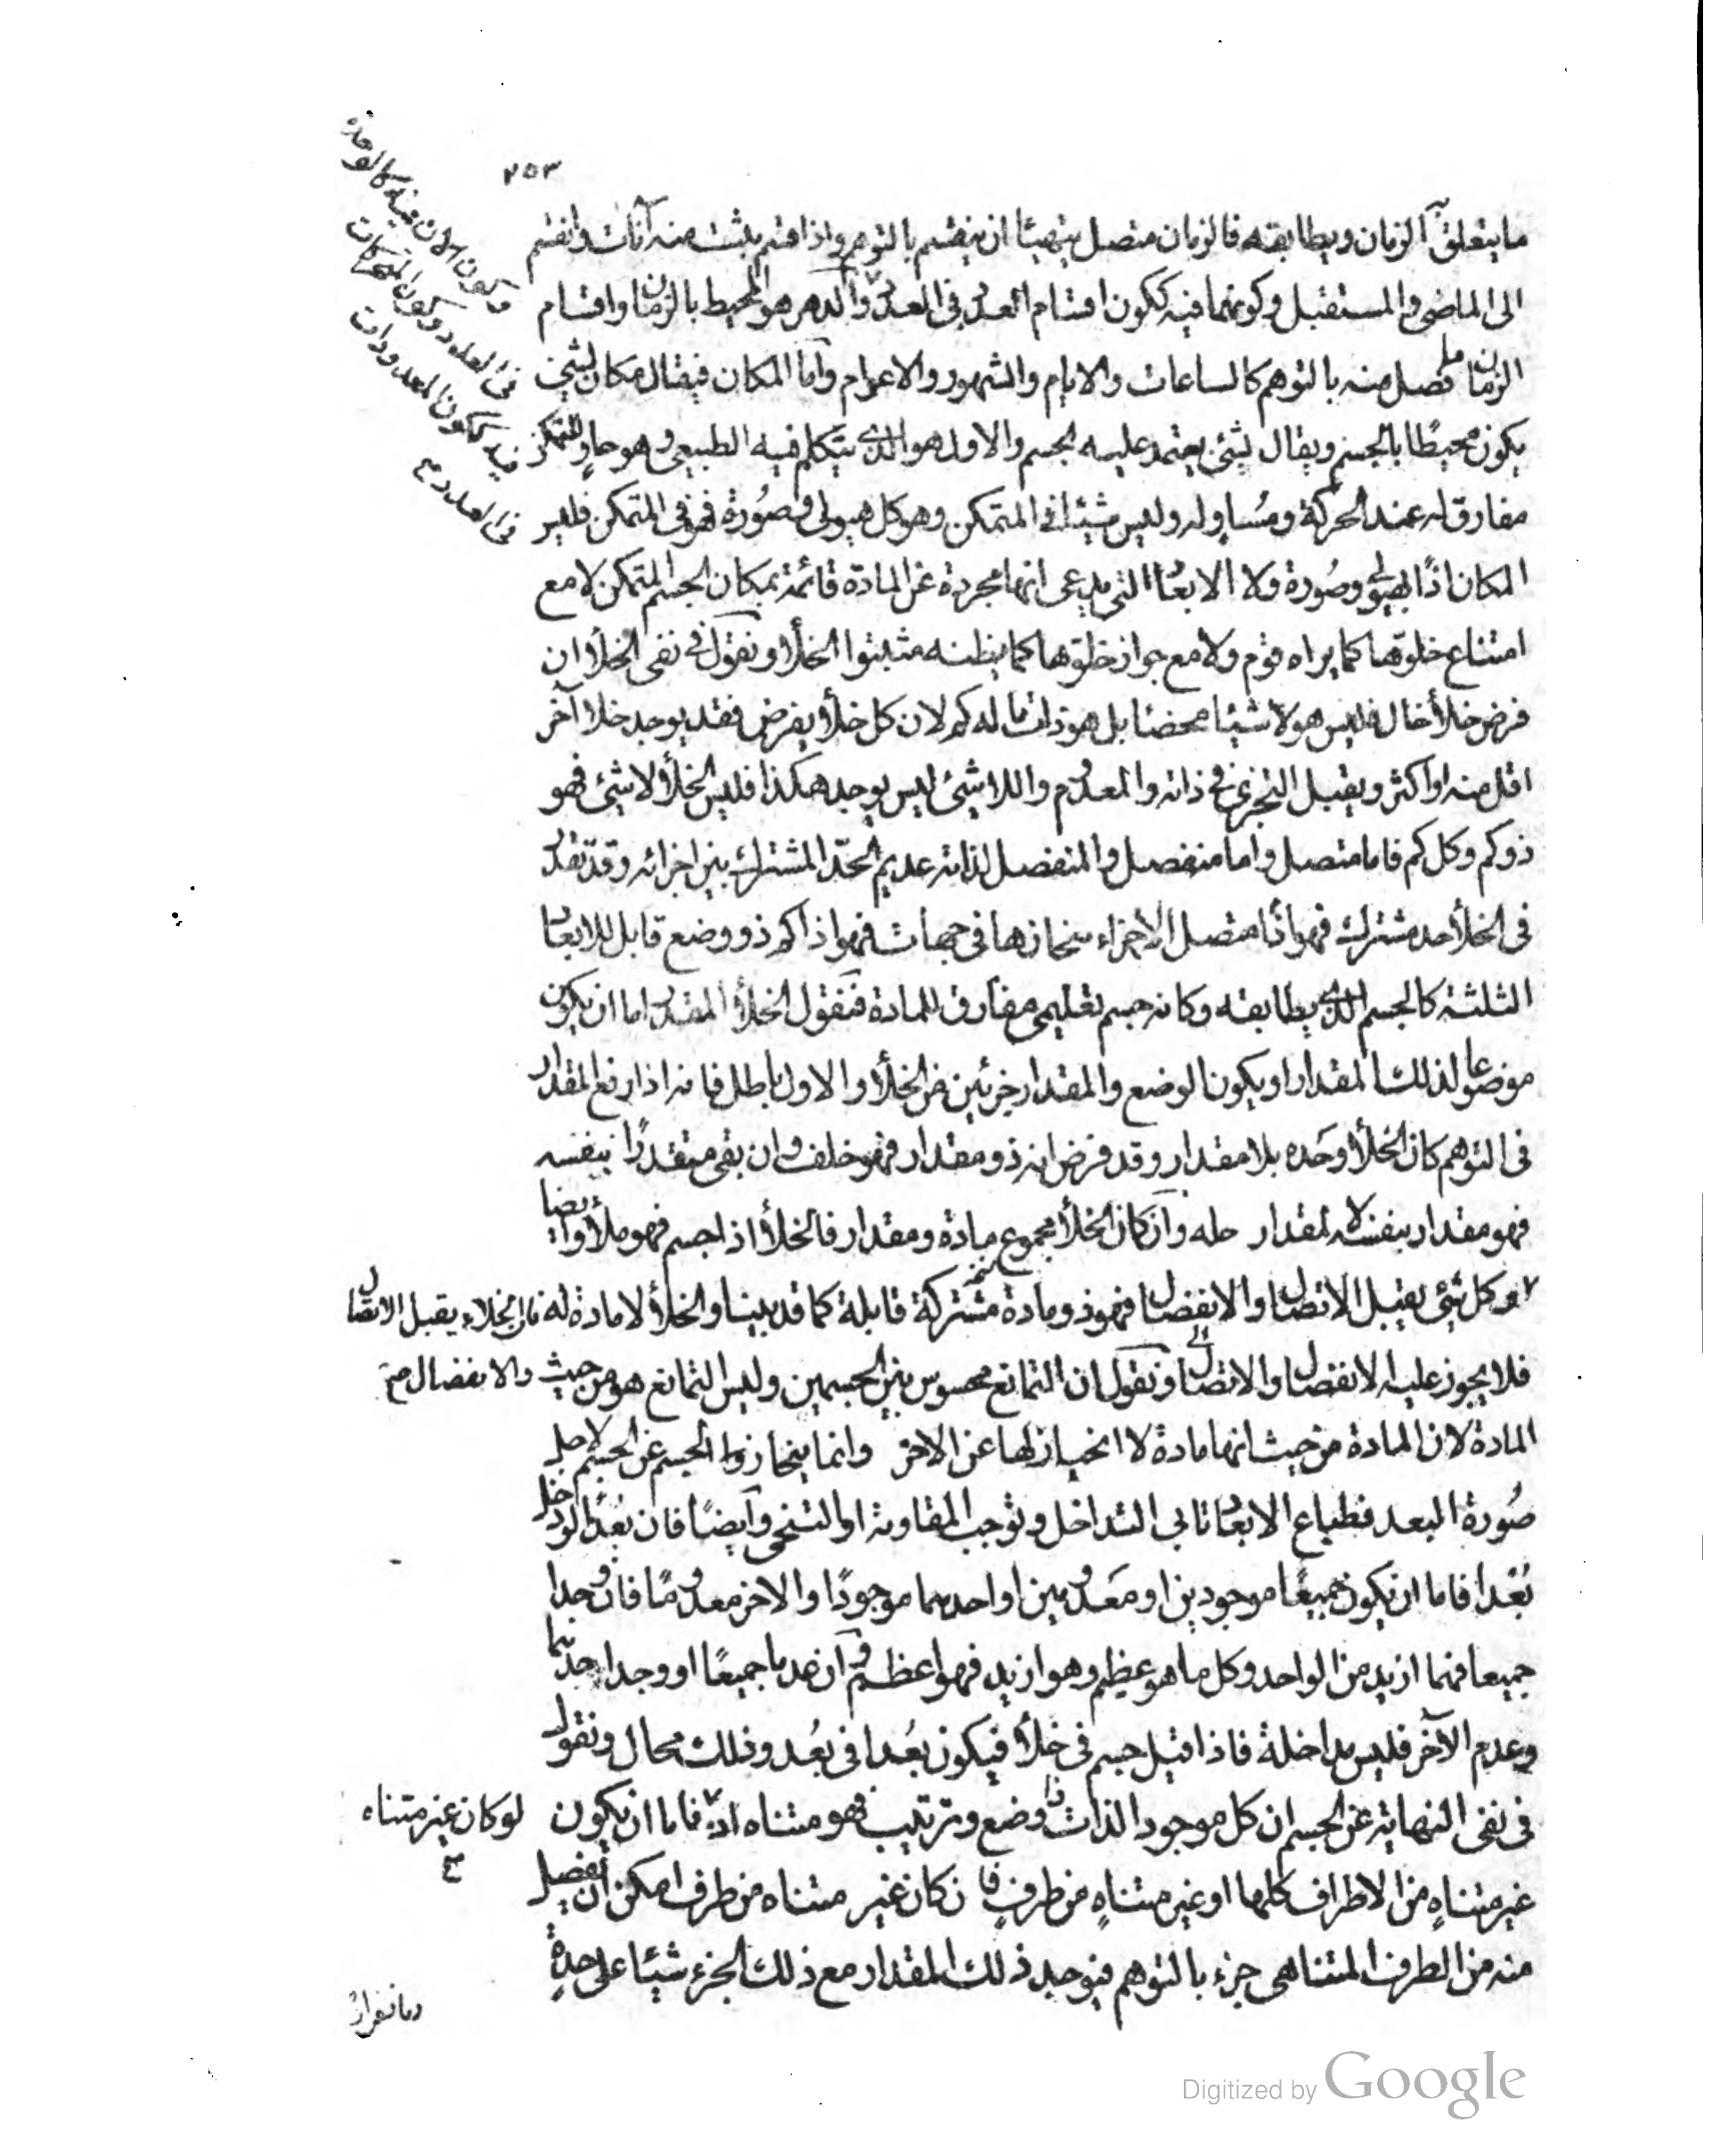 ٢٥٣
ما يتعلق آلزمان ويطابقه فالزمان متصل يتهيئا ان ينقسم بالتوهم واذا قسم يثبت منه آنات وانقسم
الى الماضى والمستقبل وكونهما فيه ككون اقسام العدد فى العدد والدهر هو المحيط بالزمان واقسام
الزمان ما فصل منه بالتوهم كالساعات والايام والشهور والاعوام واما المكان فيقال مكان لشئ
يكون محيطا بالجسم ويقال لشئ يعتمد عليه الجسم والاول هو الذى يتكلم فيه الطبيعى وهو حاو للمتمكن
مفارق له عند الحركة ومساو له وليس شيئا فى المتمكن وهو كل هيولى وصورة فهو فى المتمكن فليس
المكان اذًا بهيولى وصورة ولا الابعاد التى يدعى انها مجردة عن المادة قائمة بمكان الجسم المتمكن لا مع
امتناع خلوها كما يراه قوم ولا مع جواز خلوها كما يظنه مثبتوا الخلأ ونقول فى نفى الخلأ ان
فرض خلأ خال فليس هو لا شيئا محضا بل هو ذات ما له كم لان كل خلأ يفرض فقد يوجد خلا آخر
اقل منه او اكثر ويقبل التجزى فى ذاته والمعدوم واللا شئ ليس يوجد هكذا فليس الخلأ لا شئ فهو
ذو كم وكل كم فاما متصل واما منفصل والمنفصل لذاته عديم الحد المشترك بين اجزائه وقد تقدر
فى الخلأ حد مشترك فهو اذًا متصل الاجزاء منحازها فى جهات فهو اذا كم ذو وضع قابل للابعاد
الثلثة كالجسم الذى يطابقه وكانه جسم تعليمى مفارق للمادة فنقول الخلأ المقدر اما ان يكون
موضوعا لذلك المقدار او يكون الوضع والمقدار جزئين من الخلأ والاول باطل فانه اذا رفع المقدار
فى التوهم كان الخلأ وحده بلا مقدار وقد فرض انه ذو مقدار فهو خلف وان بقى متقدرًا بنفسه
فهو مقدار بنفسه لا لمقدار حله وان كان الخلأ مجموع مادة ومقدار فالخلأ اذا جسم فهو ملأ وايضا
وكل شئ يقبل الاتصال والانفصال فهو ذو مادة مشتركة قابلة كما قد بينا والخلأ لا مادة له فان الخلاء يقبل الاتصال
والانفصال صح
فلا يجوز عليه الانفصال والاتصال ونقول ان التمانع محسوس بين الجسمين وليس التمانع هو من حيث
المادة لان المادة من حيث انها مادة لا انحياز لها عن الاخر وانما ينحاز الجسم عن الجسم لاجل
صورة البعد فطباع الابعاد تابى التداخل وتوجب المقاومة او التنحى وآيضًا فان بعدًا لو دخل
بُعْدا فاما ان يكون جميعًا موجودين او معدومين او احدهما موجودًا والاخر معدومًا فان وجدا
جميعا فهما ازيد من الواحد وكل ما هو عظيم وهو ازيد فهو اعظم وان عدما جميعًا او وجد احدهما
وعدم الآخر فليس مداخلة فاذا قيل جسم فى خلأ فيكون بُعدا فى بُعد وذلك محال ونقول
فى نفى النهاية عن الجسم ان كل موجود الذات ذا وضع وترتيب فهو متناه اذ فاما ان يكون
لو كان غير متناه
صح
غير متناهٍ من الاطراف كلها او غير متناهٍ من طرفٍ فان كان غير متناه من طرف امكن ان يفصل
منه من الطرف المتناهى جزء بالتوهم فيوجد ذلك المقدار مع ذلك الجزء شيئا على حدةٍ
وبانفراد
ويكون الآن فيه كالوحدة
فى العدد وكون المتحركات
فيه ككون المعدودات
فى العدد صح
Digitized by Google